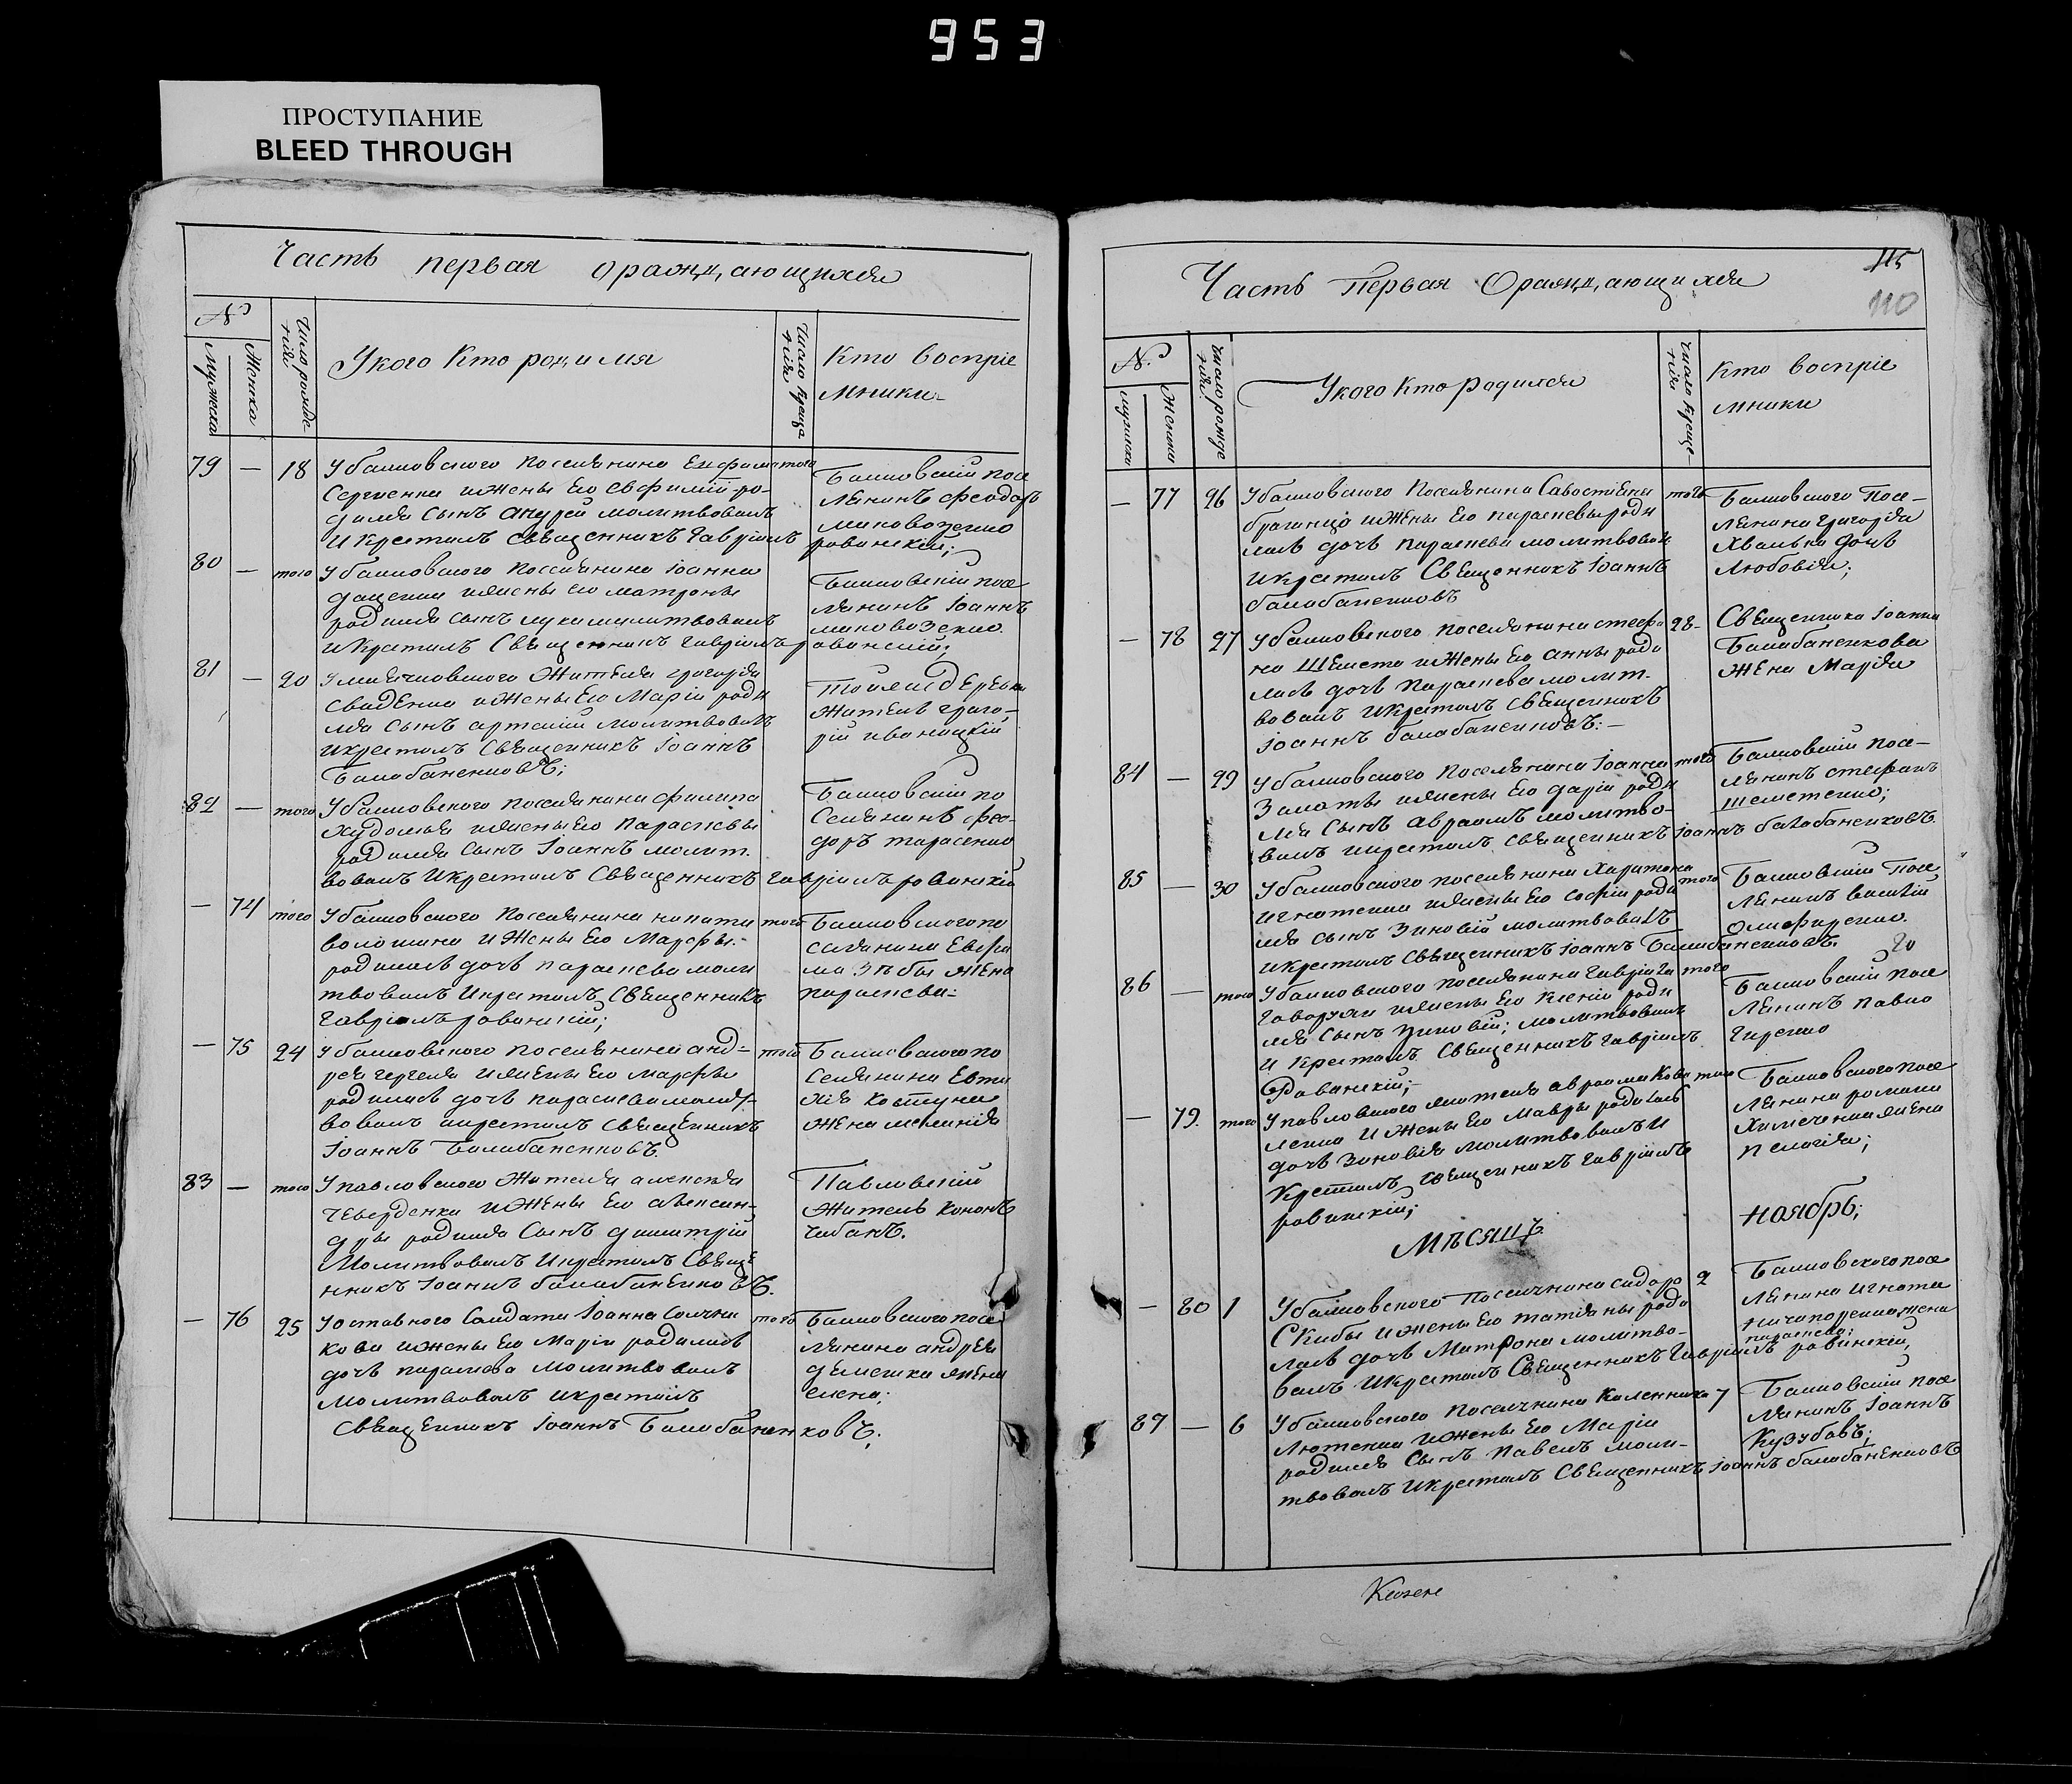 953
ПРОСТУПАНИЕ
BLEED THROUGH
Часть первая ораждающихся
№
Мужеска
Женска
Число рожде-
нія
Укого Кто родился
Число креще
нія
Кто воспріе
мники
79 — 18 Убалковского поселянина Ефима того
Сергиенка иЖены Его Евфимій ро-
дился Сынъ андрей молитвовалъ
И Крестилъ Священникъ Гавріилъ равинскій;
Балковскій посе
лянинъ феодоръ
80 — того Убалковского поселянина Іоанна
иЖены его матроны
родился сынъ лука молитвовалъ
икрестилъ Священникъ Гавріилъ равинскій;
Балковскій посе
лянинъ Іоаннъ
81 — 20 Жителя григорія
иЖены Его Маріи роди
лся Сынъ артемій молитвовалъ
икрестилъ Священникъ Іоаннъ
Балабаненковъ;
тойжъ деревни
Житель григо-
рій иваницкій
82 — того Убалковского поселянина филипа
иЖены Его Параскевы
родился Сынъ Іоаннъ молит.
вовалъ Икрестилъ Священникъ Гавріилъ равинскій
Балковскій по
Селянинъ фео-
доръ тарасенко
— 74 того Убалковского поселянина
волошина иЖены Его Марфы
родилась дочь параскева моли
твовалъ Икрестилъ Священникъ
Гавріилъ равинскій;
того Балковского по
селянина Евфи
ма Жена
параскева
— 75 24 Убалковского поселянина анд-
рея гергеля иЖены Его марфы
родилась дочь параскева молит-
вовалъ икрестилъ Священникъ
Іоаннъ Балабаненковъ.
того Балковского по
Селянина Евти
хія Ковтуна
жена меланія
83 — того Упавловского Жителя алексія
Чеверденка иЖены Его алексан-
дры родился Сынъ димитрій
Молитвовалъ Икрестилъ Свяще
нникъ Іоаннъ балабаненковъ.
Павловскій
житель кононъ
Чабанъ.
— 76 25 Уотставного Салдата Іоанна
кова иЖены Его Маріи родилась
дочь параскева Молитвовалъ
Молитвовалъ икрестилъ
Священникъ Іоаннъ Балабаненковъ;
того Балковского посе
лянина андрея
жена
елена;
115
110
Часть Первая Ораждающихся
№
Женска
Число рожде
нія
Укого Кто родился
Число креще-
нія
Кто воспріе
мники
— 77 26 Убалковского Поселянина Савостіяна
браганца иЖены Его параскевы роди
лась дочь параскева молитвовалъ
икрестилъ Священникъ Іоаннъ
балабаненковъ
того Балковского Посе-
лянина григорія
дочь
Любовія;
— 78 27 Убалковского поселянина стефа
на Шемета иЖены Его анны роди
лась дочь Параскева молит-
вовалъ Икрестилъ Священникъ
Іоаннъ балабаненковъ:—
28 Священника Іоанна
Балабаненкова
жена Марія
84 — 29 Убалковского Поселянина Іоанна
Золоты иЖены Его даріи роди
лся Сынъ авраамъ молитво-
валъ икрестилъ священникъ Іоаннъ балабаненковъ.
того Балковскій посе-
лянинъ стефанъ
шеметенко;
85 — 30 Убалковского поселянина Харитона
игнатенка иЖены Его Софіи роди
лся сынъ Зиновій молитвовалъ
икрестилъ Священникъ Іоаннъ Балабаненковъ.
того Балковскій Посе
лянинъ василій
20
86 — того Убалковского поселянина Гавріила
иЖены Его Ксеніи роди
лся Сынъ Зиновій; молитвовалъ
И Крестилъ Священникъ Гавріилъ
Равинскій;
того Балковскій посе
лянинъ Павло
— 79 того Упавловского жителя авраама Кова
ленка И Жены Его Мавры родилась
дочь Зиновія молитвовалъ И
Крестилъ Священникъ Гавріилъ
равинскій;
того Балковского посе
лянина романа
жена
пелагія;
Мѣсяцъ ноябрь;
— 80 1 Убалковского поселянина сидора
Скибы иЖены Его татіяны роди
лась дочь Матрона молитво-
валъ Икрестилъ Священникъ Гавріилъ равинскій;
2 Балковского посе
лянина игната
ничипоренка жена
параскева;
87 — 6 Убалковского поселянина Каленика
Лютенка иЖены Его Маріи
родился Сынъ Павелъ моли-
твовалъ Икрестилъ Священникъ Іоаннъ балабаненковъ
7 Балковскій посе
лянинъ Іоаннъ
Кузубовъ;